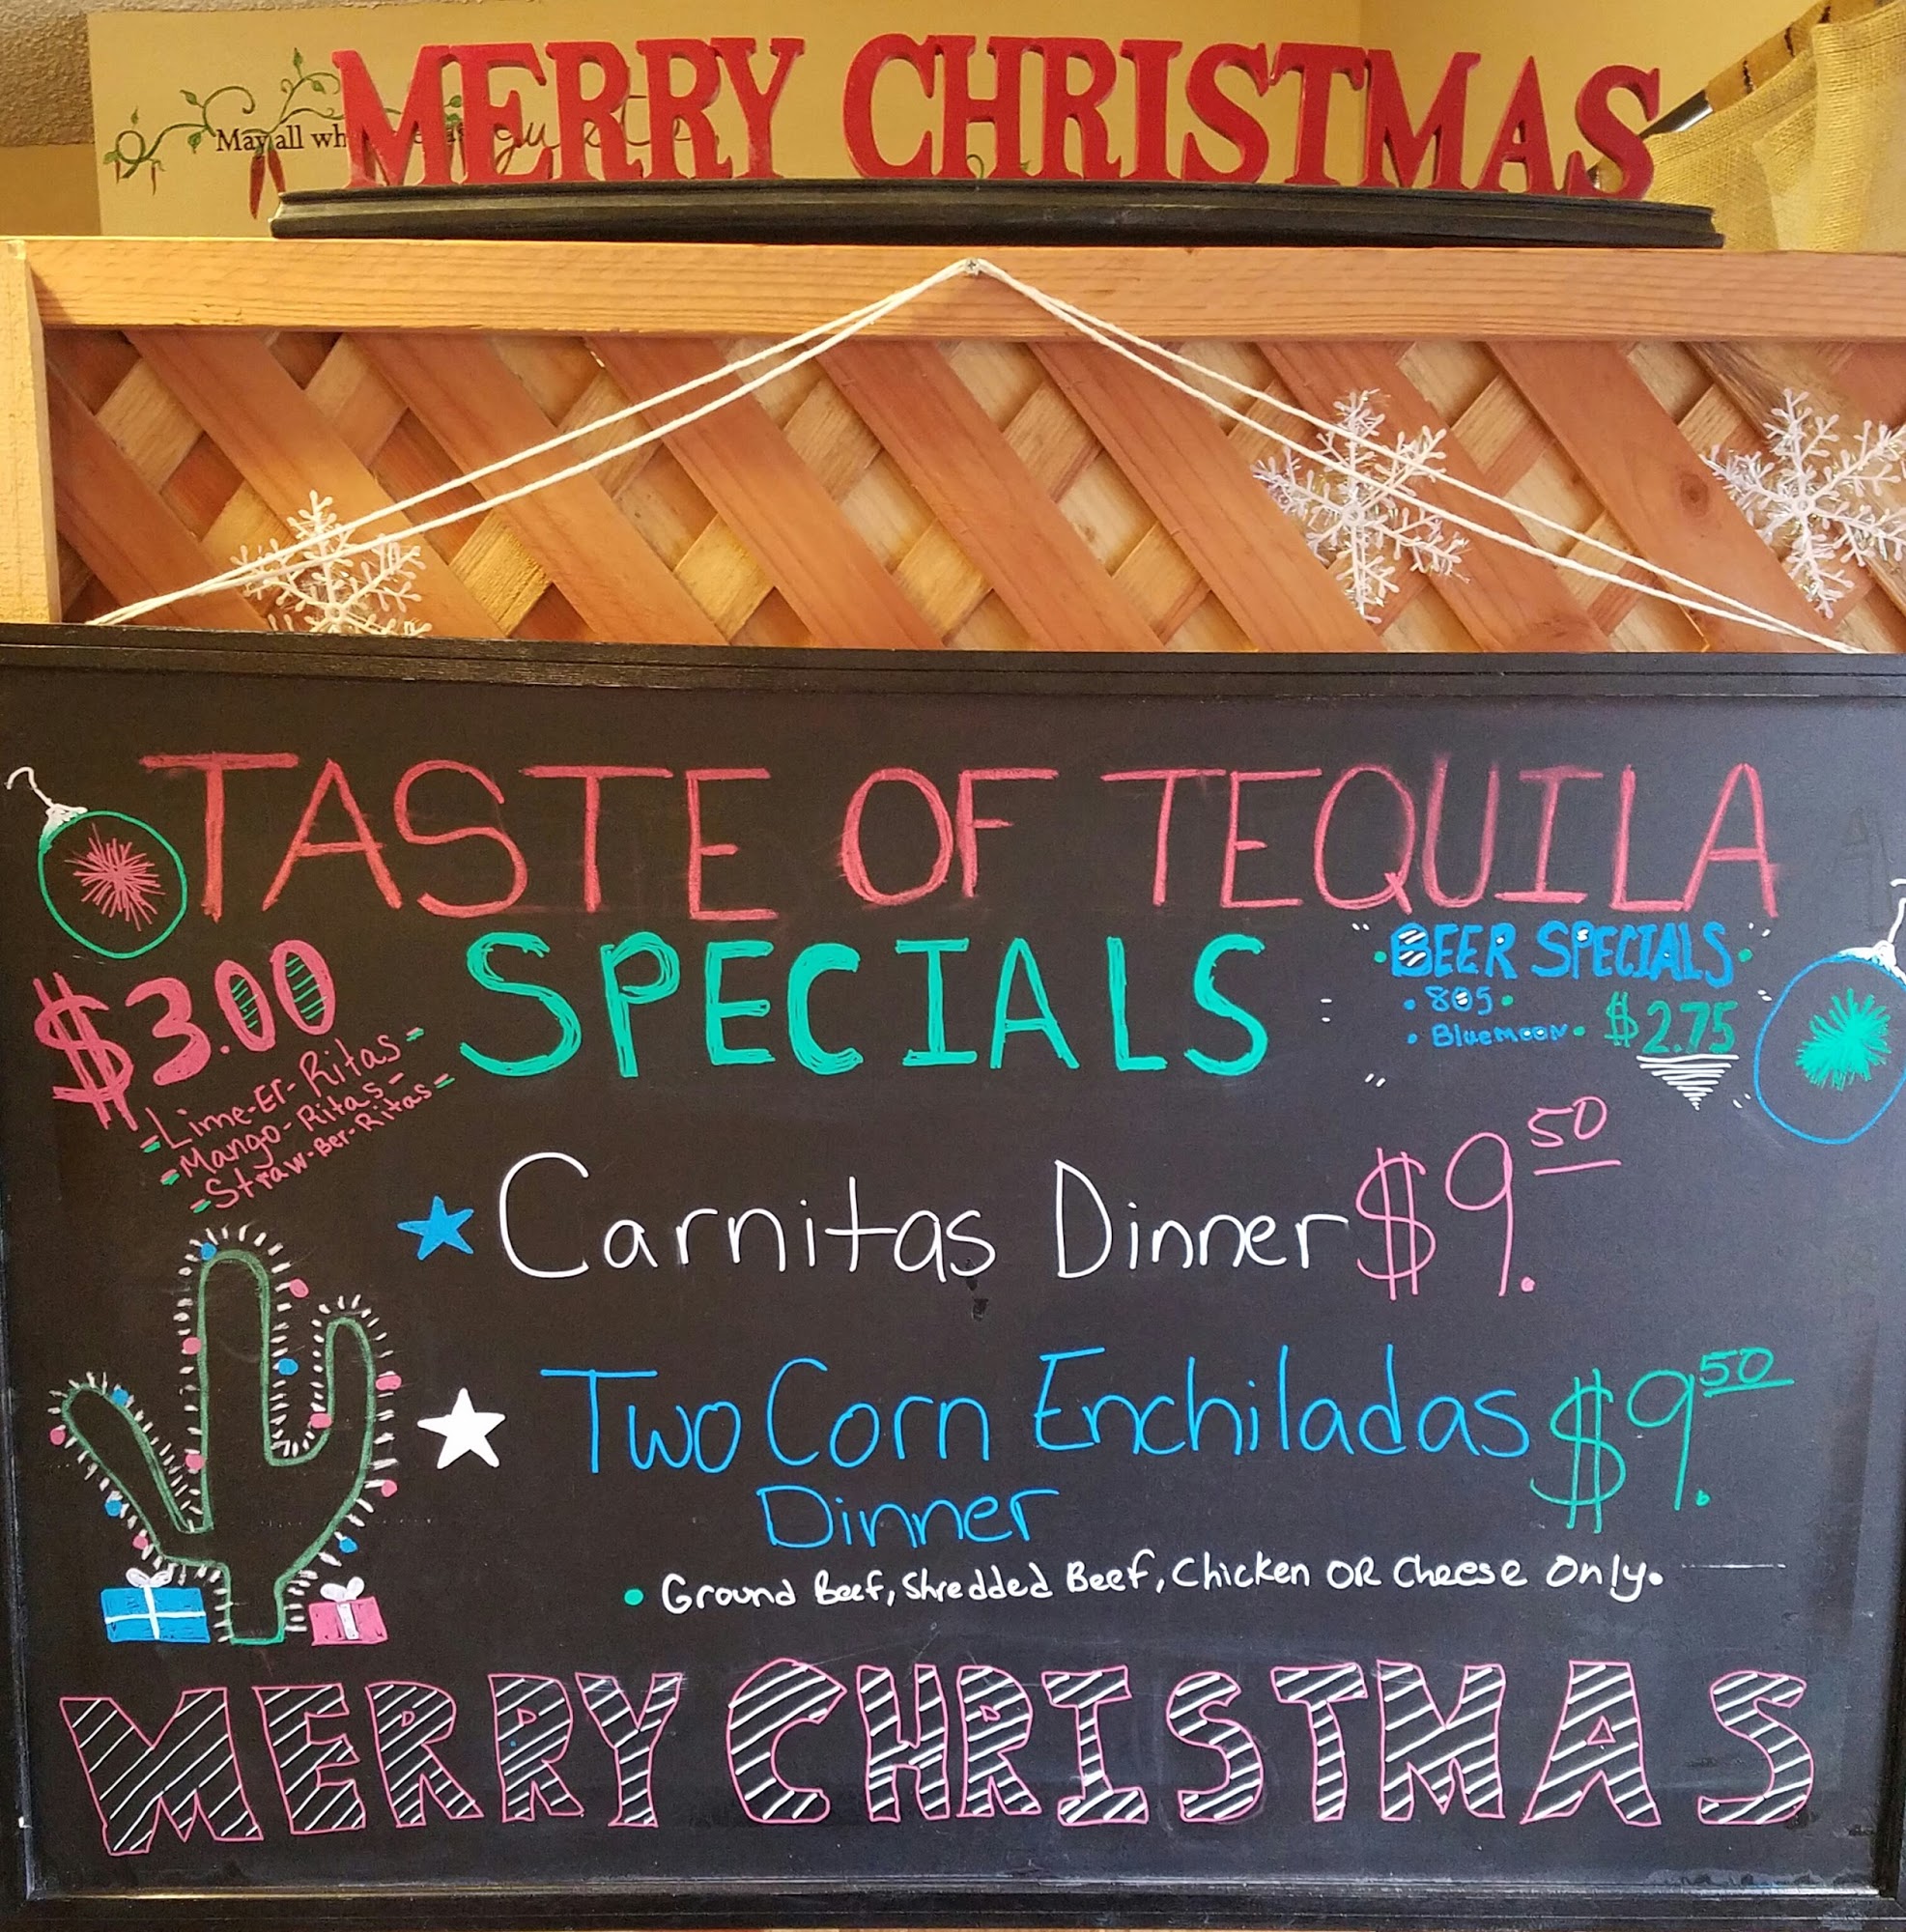 MERRY CHRISTMAS
May all wh
TASTE OF TEQUILA
SPECIALS
$3.00
-Lime-Er-Ritas-
-Mango-Ritas-
-Straw-Ber-Ritas-
BEER SPECIALS
• 805 •
• Blue Moon •
$2.75
Carnitas Dinner $9.50
Two Corn Enchiladas $9.50
Dinner
• Ground Beef, Shredded Beef, Chicken OR Cheese Only.
MERRY CHRISTMAS